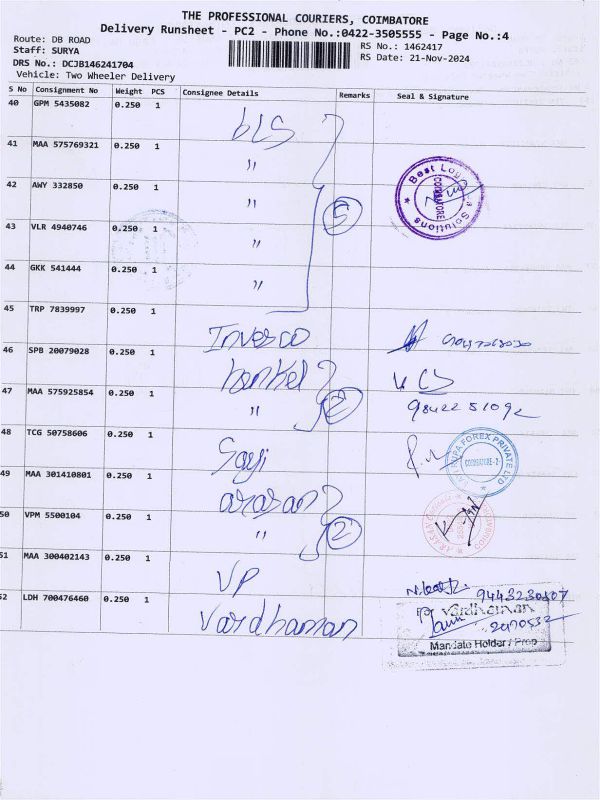 THE PROFESSIONAL COURIERS, COIMBATORE
Delivery Runsheet - PC2 - Phone No.:0422-3505555 - Page No.:4
Route: DB ROAD
RS No.: 1462417
Staff: SURYA
RS Date: 21-Nov-2024
DRS No.: DCJB146241704
Vehicle: Two Wheeler Delivery
S No Consignment No Weight PCS Consignee Details Remarks Seal & Signature
40 GPM 5435082 0.250 1 bLS
41 MAA 575769321 0.250 1 "
42 AWY 332850 0.250 1 " 5
43 VLR 4940746 0.250 1 "
44 GKK 541444 0.250 1 "
Best Solutions
COIMBATORE
45 TRP 7839997 0.250 1 Invesco
46 SPB 20079028 0.250 1 henkel
47 MAA 575925854 0.250 1 " 2 98422 51092
48 TCG 50758606 0.250 1 Sayi
FOREX PRIVATE LTD
COIMBATORE-2
49 MAA 301410801 0.250 1
50 VPM 5500104 0.250 1 " 2
51 MAA 300402143 0.250 1 VP
52 LDH 700476460 0.250 1 Vardhaman
9443230507
For Vardhaman
2470532
Mandate Holder / Prop